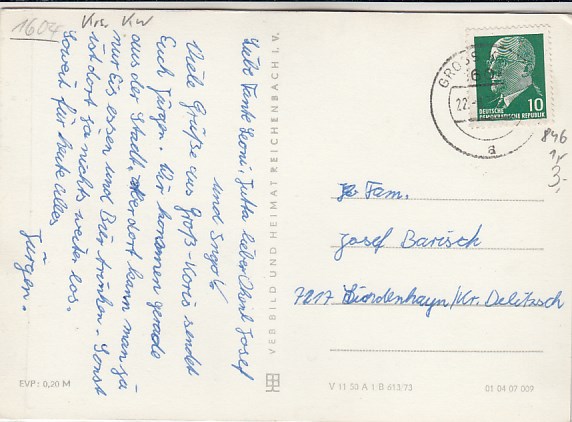 1604 Krs. KW
Liebe Tante Leoni, Jutta lieber Onkel Josef
und Ingolf
Viele Grüße aus Groß-Köris sendet
Euch Jürgen. Wir kommen gerade
aus der Stadt, aber dort kann man ja
nur Eis essen und Bier trinken. Sonst
ist dort ja nichts weiter los.
Soweit für heute alles
Jürgen.
EVP: 0,20 M
VEB BILD UND HEIMAT REICHENBACH I. V.
GROSS
22.
a
10
DEUTSCHE
DEMOKRATISCHE REPUBLIK
846
3,-
Fam.
Josef Barisch
7217 /Kr. Delitzsch
V 11 50 A 1 B 613/73
01 04 07 009